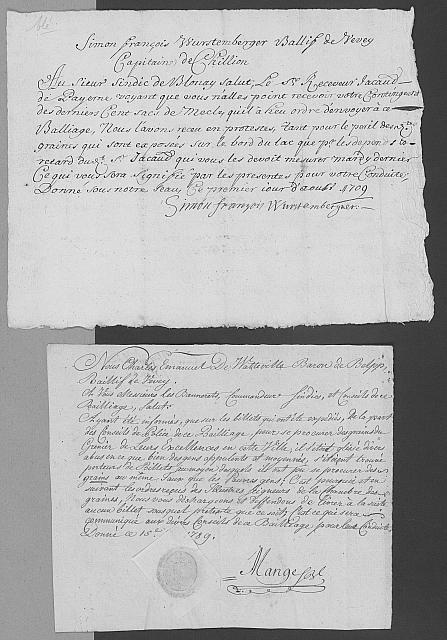 blé
Simon françois Wurstemberger Ballif de Vevey
Capitaine de Chillion
Au Sieur Sindic de Blonay Salut, Le Sr. Receveur Jacaud
de Payerne voyant que vous nalles point recevoir votre Contingent
des derniers Cent sacs de Mecle, qu'il a lieu ordre d'envoyer à ce
Balliage, Nous l'avons receu en protestes, tant pour le peril des
graines qui sont exposées sur le bord du lac que pr. les depends &
retard du Sr. Jacaud qui vous les devoit mesurer mardy dernier
Ce qui vous sera Signifié par les presentes pour votre Conduite,
Donné sous notre Seau, Ce premier jour d'aoust 1709
Simon françois Wurstemberger
Nous Charles Emanuel De Watteville Baron de Belpp,
Baillif de Vevey.
A Vous Messieurs les Bannerets, Commandeur Sindics, et Conseils de ce
Bailliage, Salut,
Ayant été informés, que sur les billets qui ont été expediés, de la part
des Conseils de Police de ce Bailliage, pour se procurer des grains du
Grenier de Leurs Excellences en cette Ville, il s'étoit glissé divers
abus en ce que bien des gens opulents et moyennés, s'étoient trouvés
porteurs de Billets au moyen desquels ils ont pu se procurer des
grains au même Taux que les Pauvres gens; C'est pourquoi et en
suivant les ordres reçus des Illustres Seigneurs de la Chambre des
grains, Nous vous déchargeons et deffendons de livrer à la suite
aucun billet sous quel pretexte que ce soit; C'est ce qui sera
communiqué aux divers Conseils de ce Bailliage, pour leur Conduite
Donné ce 15e. 1789.
Mange